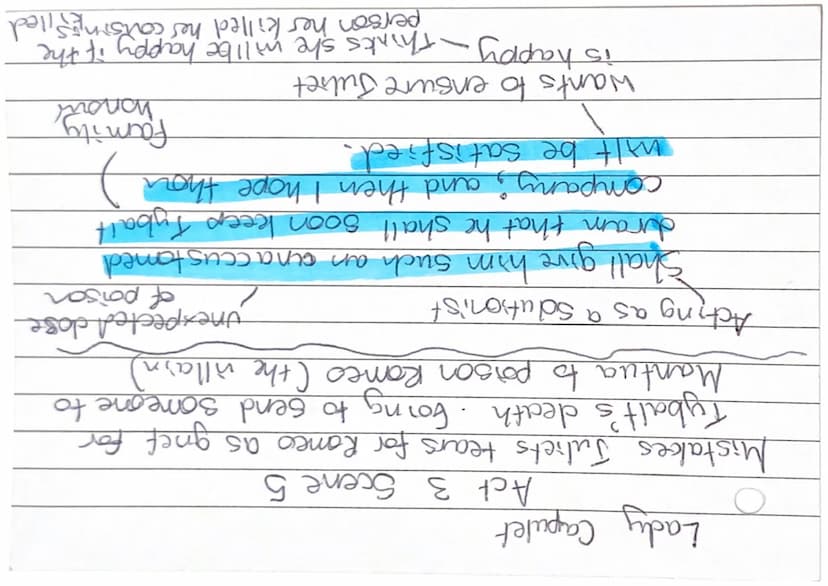 Lady Capulet
Act 3 Scene 5
Mistakes Juliets tears for Romeo as grief for
Tybalt's death. Going to send someone to
Mantua to poison Romeo (the villain)
Acting as a solutionist
unexpected dose
of poison
Shall give him such an unaccustomed
dram that he shall soon keep Tybalt
company; and then I hope thou
wilt be satisfied.
family
honour
Wants to ensure Juliet
is happy – Thinks she will be happy if the
person her killed her cousin is killed